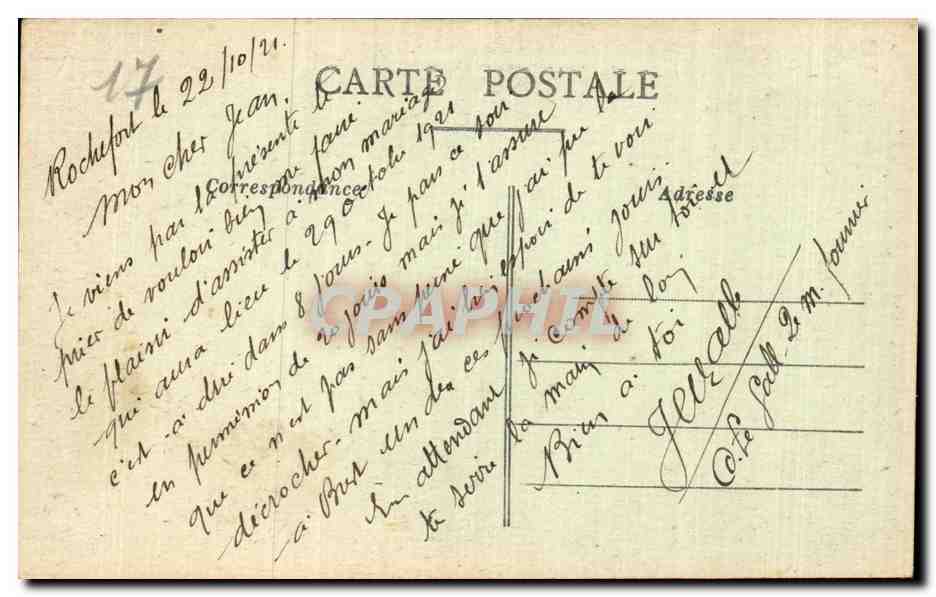 17
CARTE POSTALE
Correspondance
Adresse
Rochefort le 22/10/21.
Mon cher Jean.
Je viens par la présente te
prier de vouloir bien me faire
le plaisir d'assister à mon mariage
qui aura lieu le 29 Octobre 1921
c'est-à-dire dans 8 jours. Je pars ce soir
en permission de 20 jours mais je t'assure
que ce n'est pas sans peine que j'ai pu la
décrocher. mais j'ai bon espoir de te voir
à Brest un de ces prochains jours.
En attendant je compte sur toi et
te serre la main de loin
Bien à toi
CPAPHIL